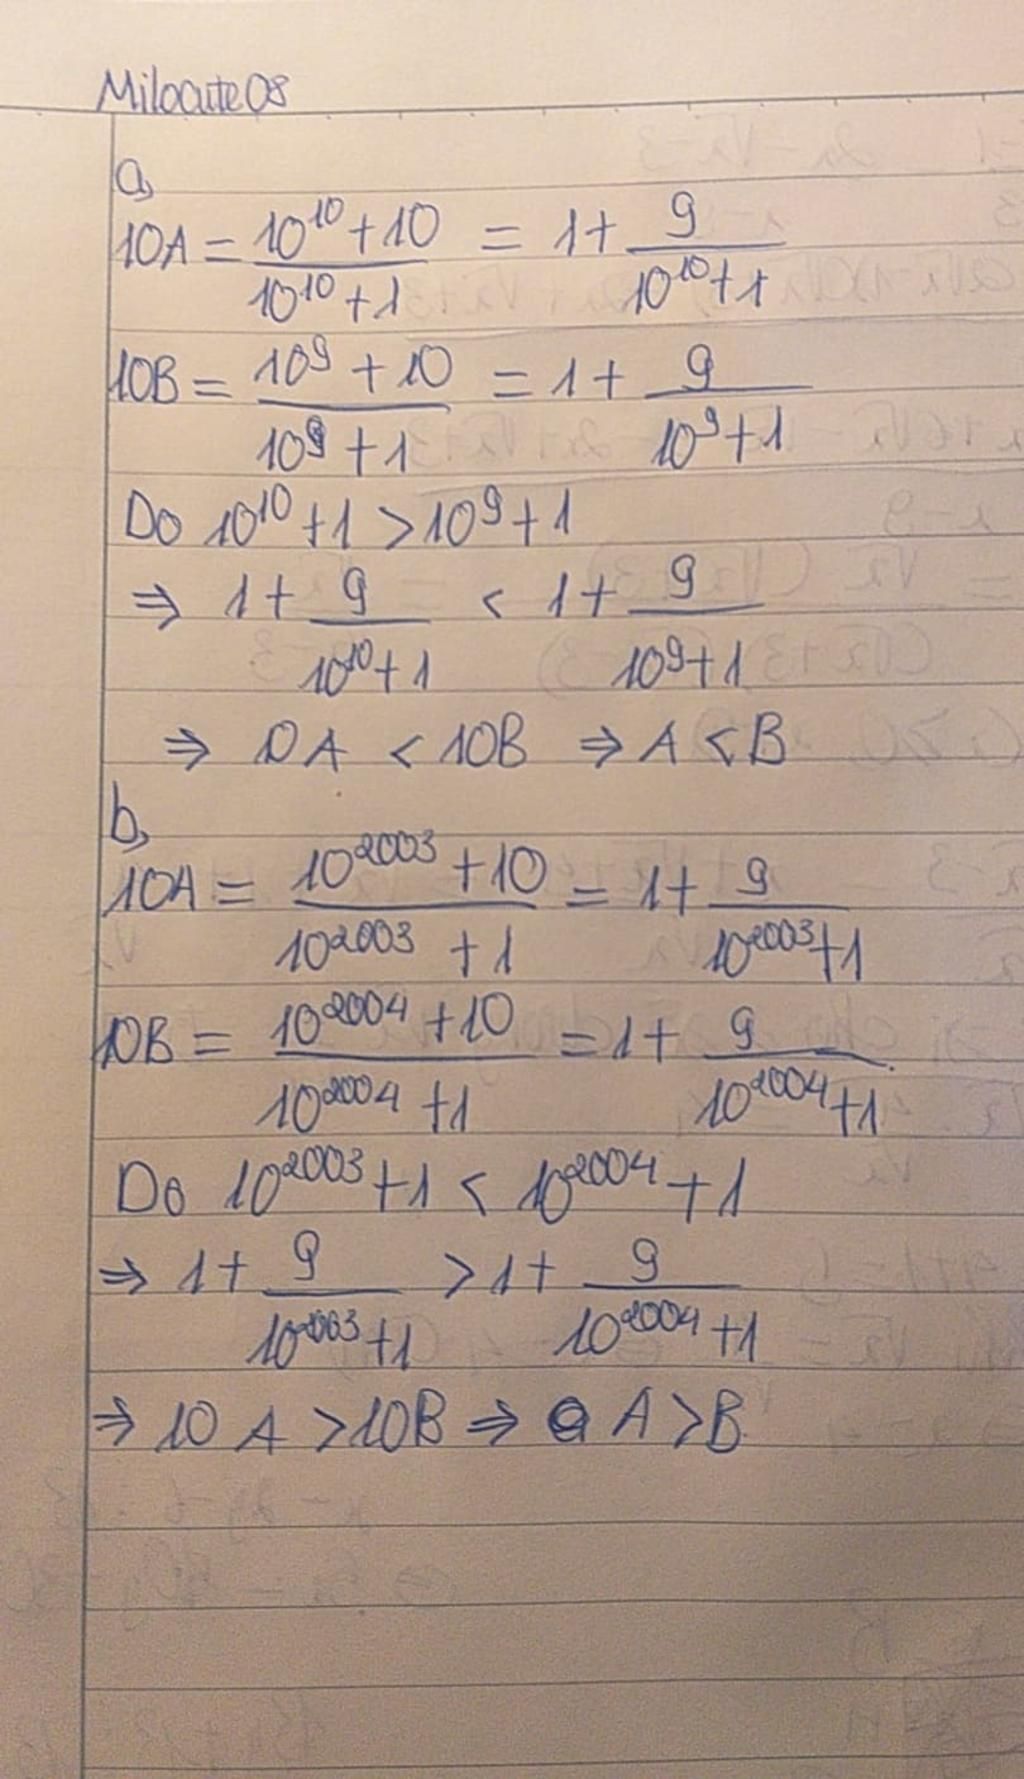 Milocute08
a,
10A = \frac{10^{10}+10}{10^{10}+1} = 1+\frac{9}{10^{10}+1}
10B = \frac{10^{9}+10}{10^{9}+1} = 1+\frac{9}{10^{9}+1}
Do 10^{10}+1 > 10^{9}+1
⇒ 1+\frac{9}{10^{10}+1} < 1+\frac{9}{10^{9}+1}
⇒ 10A < 10B ⇒ A < B
b,
10A = \frac{10^{2003}+10}{10^{2003}+1} = 1+\frac{9}{10^{2003}+1}
10B = \frac{10^{2004}+10}{10^{2004}+1} = 1+\frac{9}{10^{2004}+1}
Do 10^{2003}+1 < 10^{2004}+1
⇒ 1+\frac{9}{10^{2003}+1} > 1+\frac{9}{10^{2004}+1}
⇒ 10A > 10B ⇒ A > B